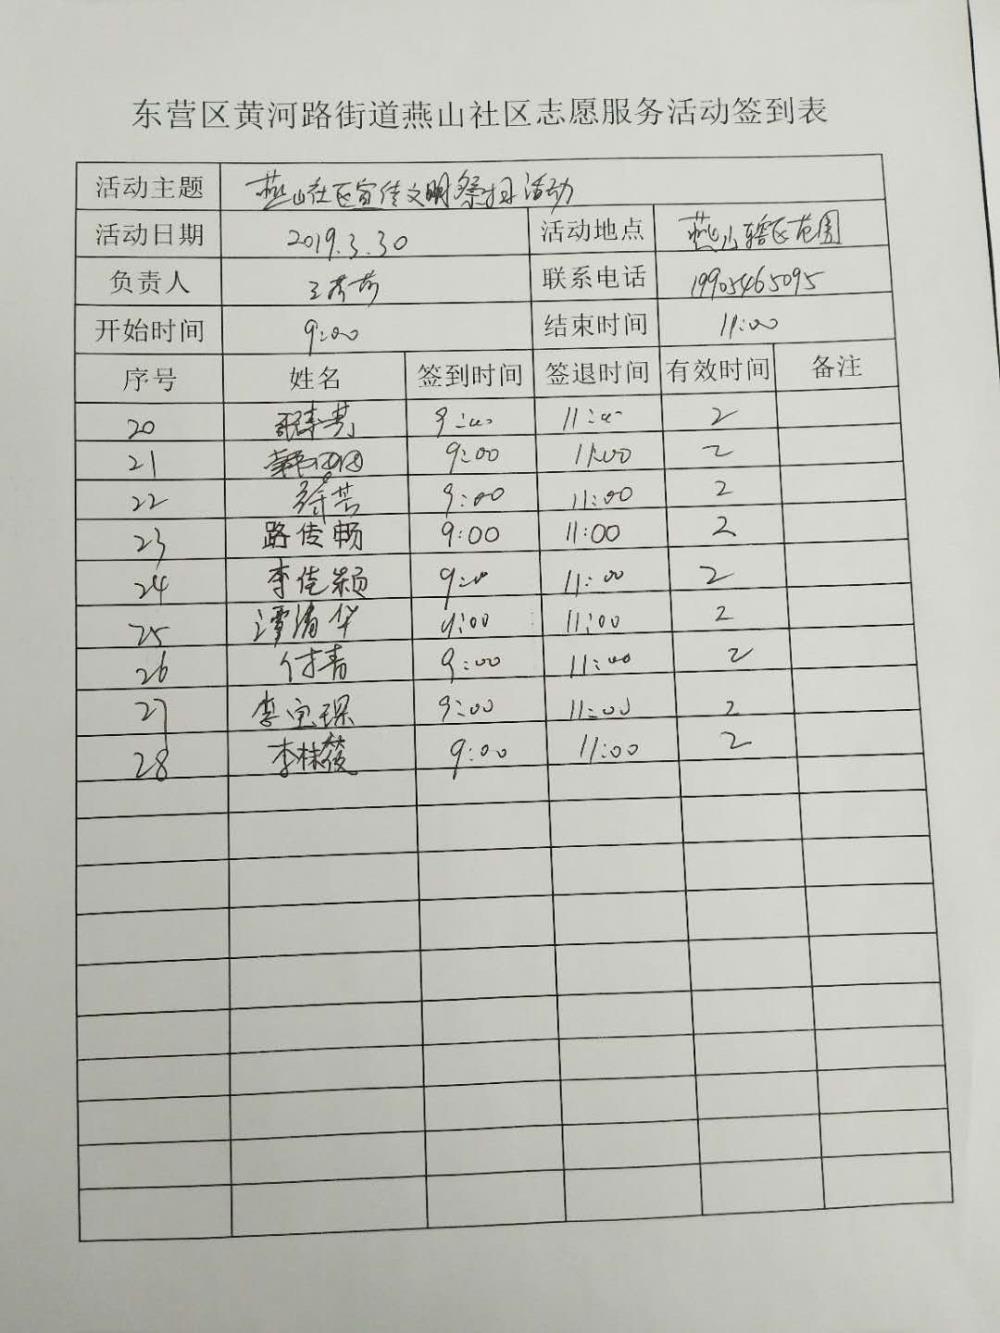 东营区黄河路街道燕山社区志愿服务活动签到表
活动主题 燕山社区宣传文明祭扫活动
活动日期 2019.3.30 活动地点 燕山辖区范围
负责人 王 联系电话 19905465095
开始时间 9:00 结束时间 11:00
序号 姓名 签到时间 签退时间 有效时间 备注
20 9:00 11:00 2
21 9:00 11:00 2
22 9:00 11:00 2
23 路传畅 9:00 11:00 2
24 李佳颖 9:00 11:00 2
25 谭清华 9:00 11:00 2
26 付青 9:00 11:00 2
27 李宝琛 9:00 11:00 2
28 李林筱 9:00 11:00 2